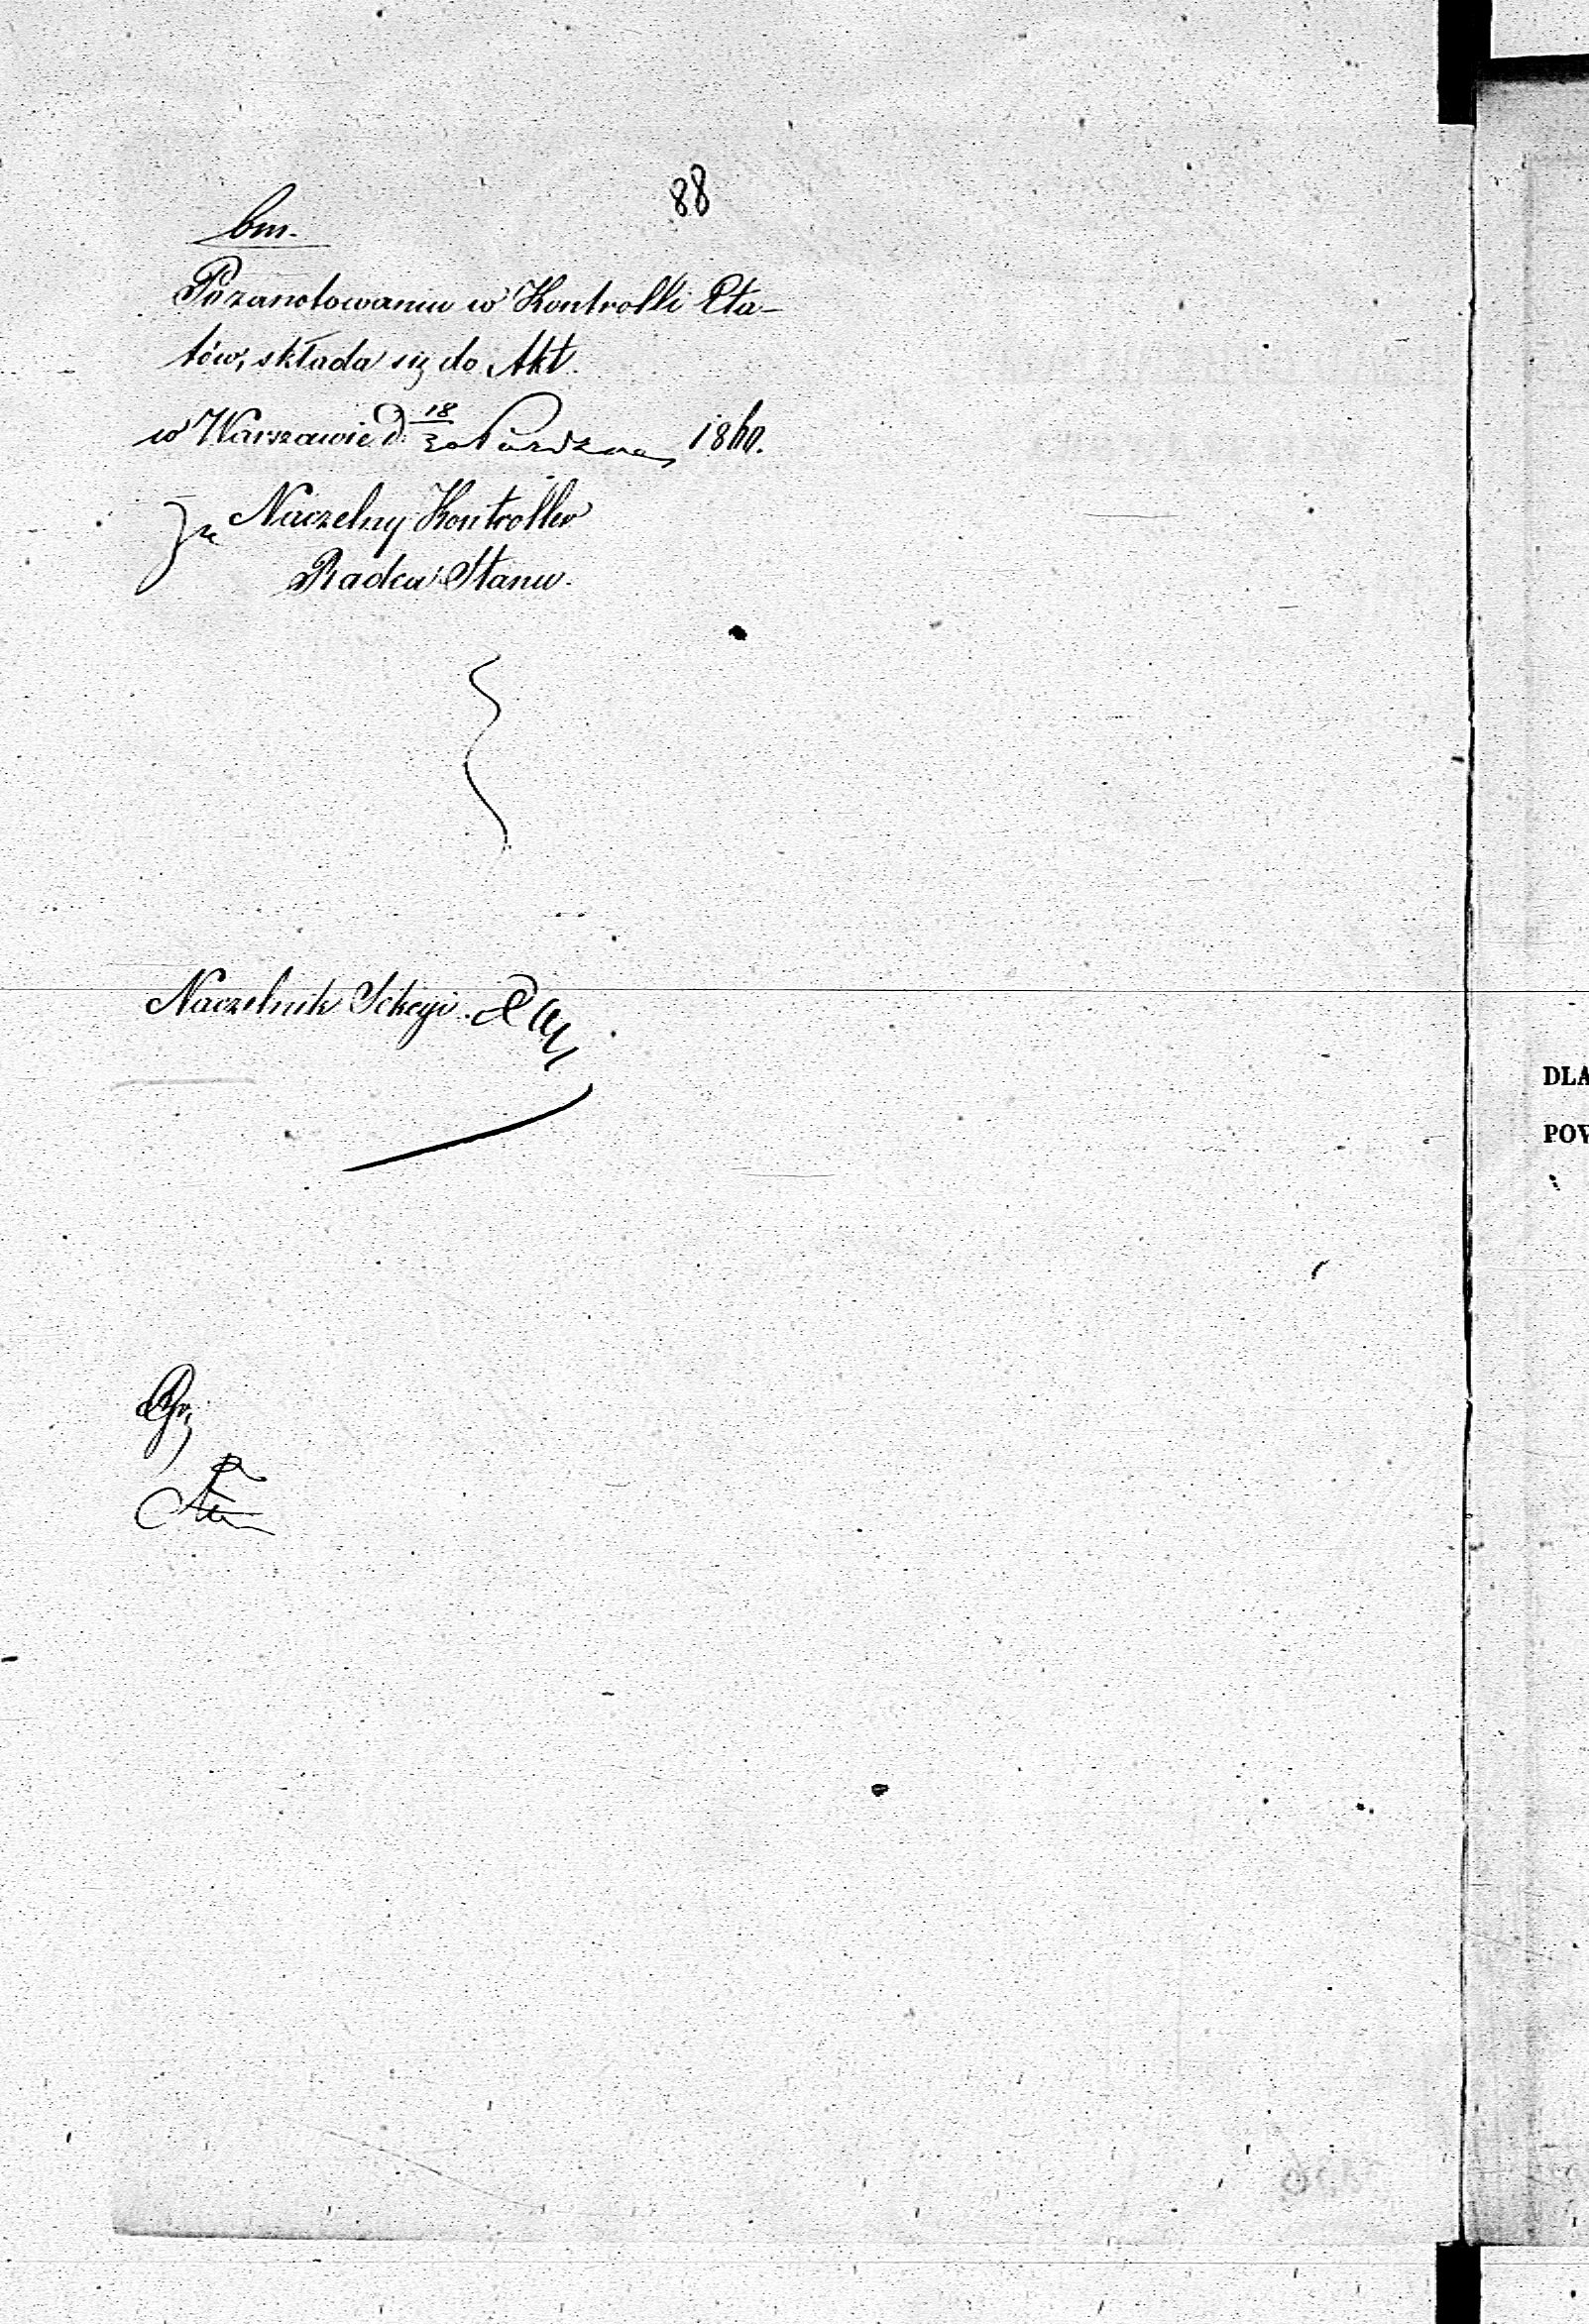 88
bm.
Po zanotowaniu w Kontrolli Eta-
tów, składa się do Akt.
w Warszawie d. 18/30 Paźdz 1860.
Za Naczelny Kontroller
Radca Stanu.
Naczelnik Sekcyi.
DLA
POW